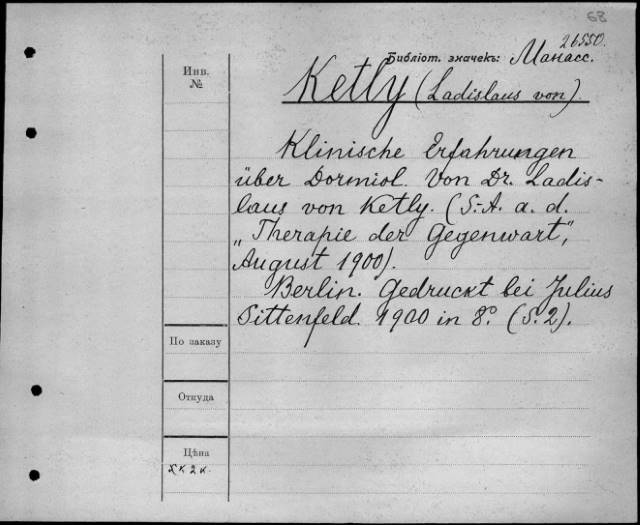 68
26550.
Библіот. значекъ: Манасс.
Инв.
№
Ketly (Ladislaus von)
Klinische Erfahrungen
über Dormiol. Von Dr. Ladis-
laus von Ketly. (S.-A. a. d.
„Therapie der Gegenwart",
August 1900).
Berlin. Gedruckt bei Julius
Sittenfeld. 1900 in 8º. (S. 2).
По заказу
Откуда
Цѣна